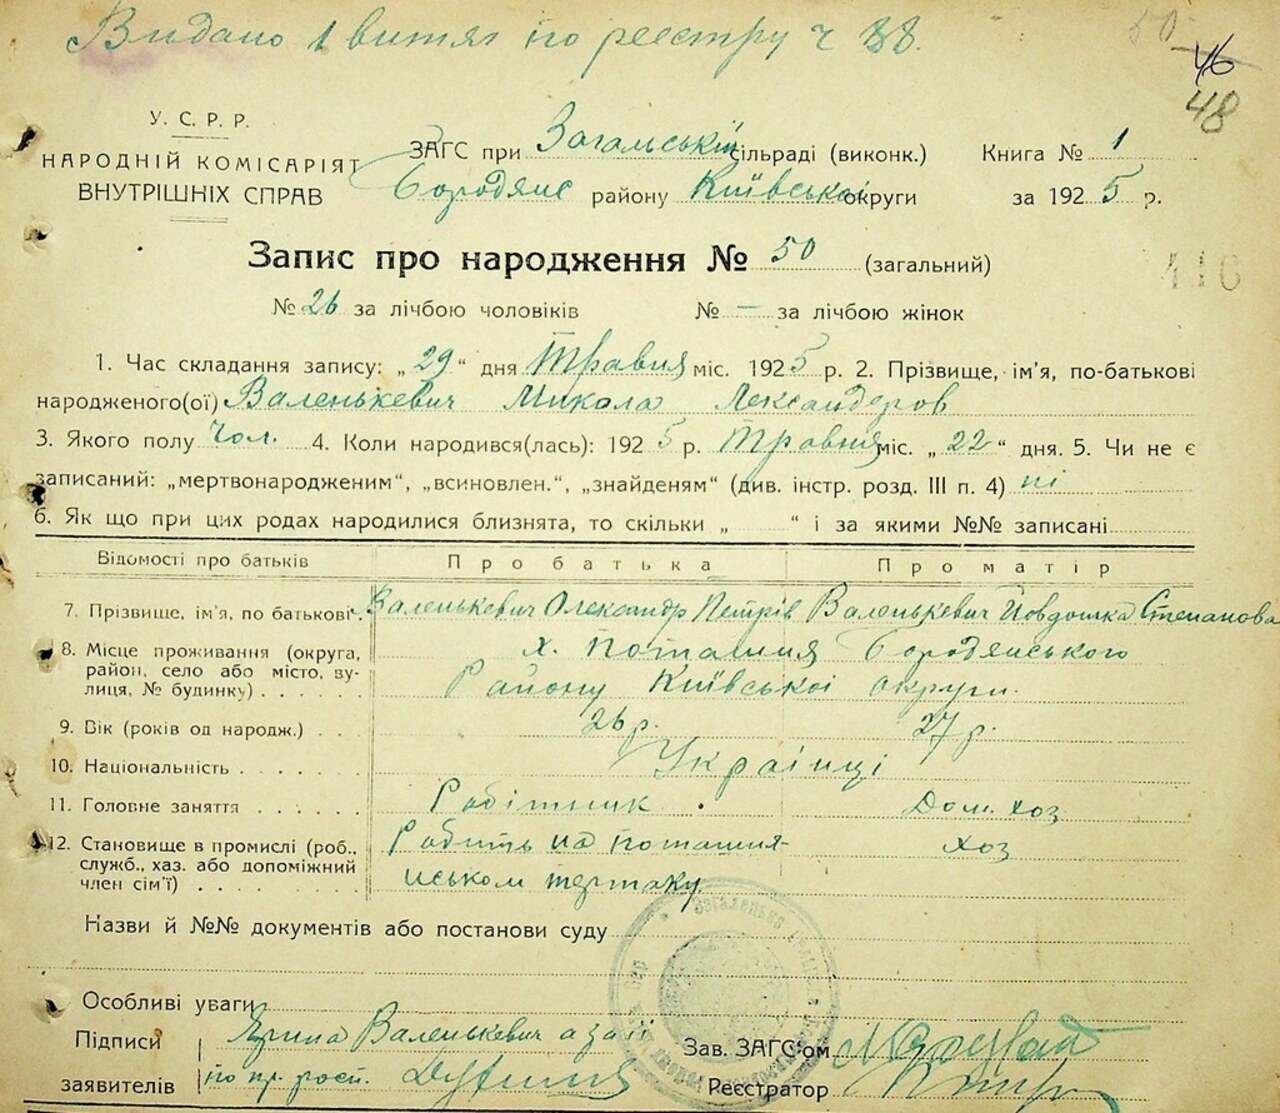 Видано 1 витяг по реєстру ч 88.
50
46
48
У. С. Р. Р.
НАРОДНІЙ КОМІСАРІЯТ
ВНУТРІШНІХ СПРАВ
ЗАГС при Загальській сільраді (виконк.) Книга № 1
Бородянс району Київської округи за 1925 р.
Запис про народження № 50 (загальний)
416
№ 26 за лічбою чоловіків № — за лічбою жінок
1. Час складання запису: „29“ дня Травня міс. 1925 р. 2. Прізвище, ім'я, по-батькові
народженого(ої) Валенькевич Микола Лександеров
3. Якого полу Чол. 4. Коли народився(лась): 1925 р. Травня міс. „22“ дня. 5. Чи не є
записаний: „мертвонародженим“, „всиновлен.“, „знайденям“ (див. інстр. розд. III п. 4) ні
6. Як що при цих родах народилися близнята, то скільки „ “ і за якими №№ записані
Відомості про батьків Про батька Про матір
7. Прізвище, ім'я, по батькові. Валенькевич Олександр Петрів Валенькевич Йовдошка Степанова
8. Місце проживання (округа, район, село або місто, вулиця, № будинку) х. Поташня Бородянського
Району Київської округи.
9. Вік (років од народж.) 26 р. 27 р.
10. Національність Українці
11. Головне заняття Робітник Дом. хоз.
12. Становище в промислі (роб., служб., хаз. або допоміжний член сім'ї) Робить на поташня- хоз
ньском тертаку.
Назви й №№ документів або постанови суду
Особливі уваги
Підписи Ярина Валенькевич а за її
Зав. ЗАГС'ом
заявителів по пр. росп.
Реєстратор